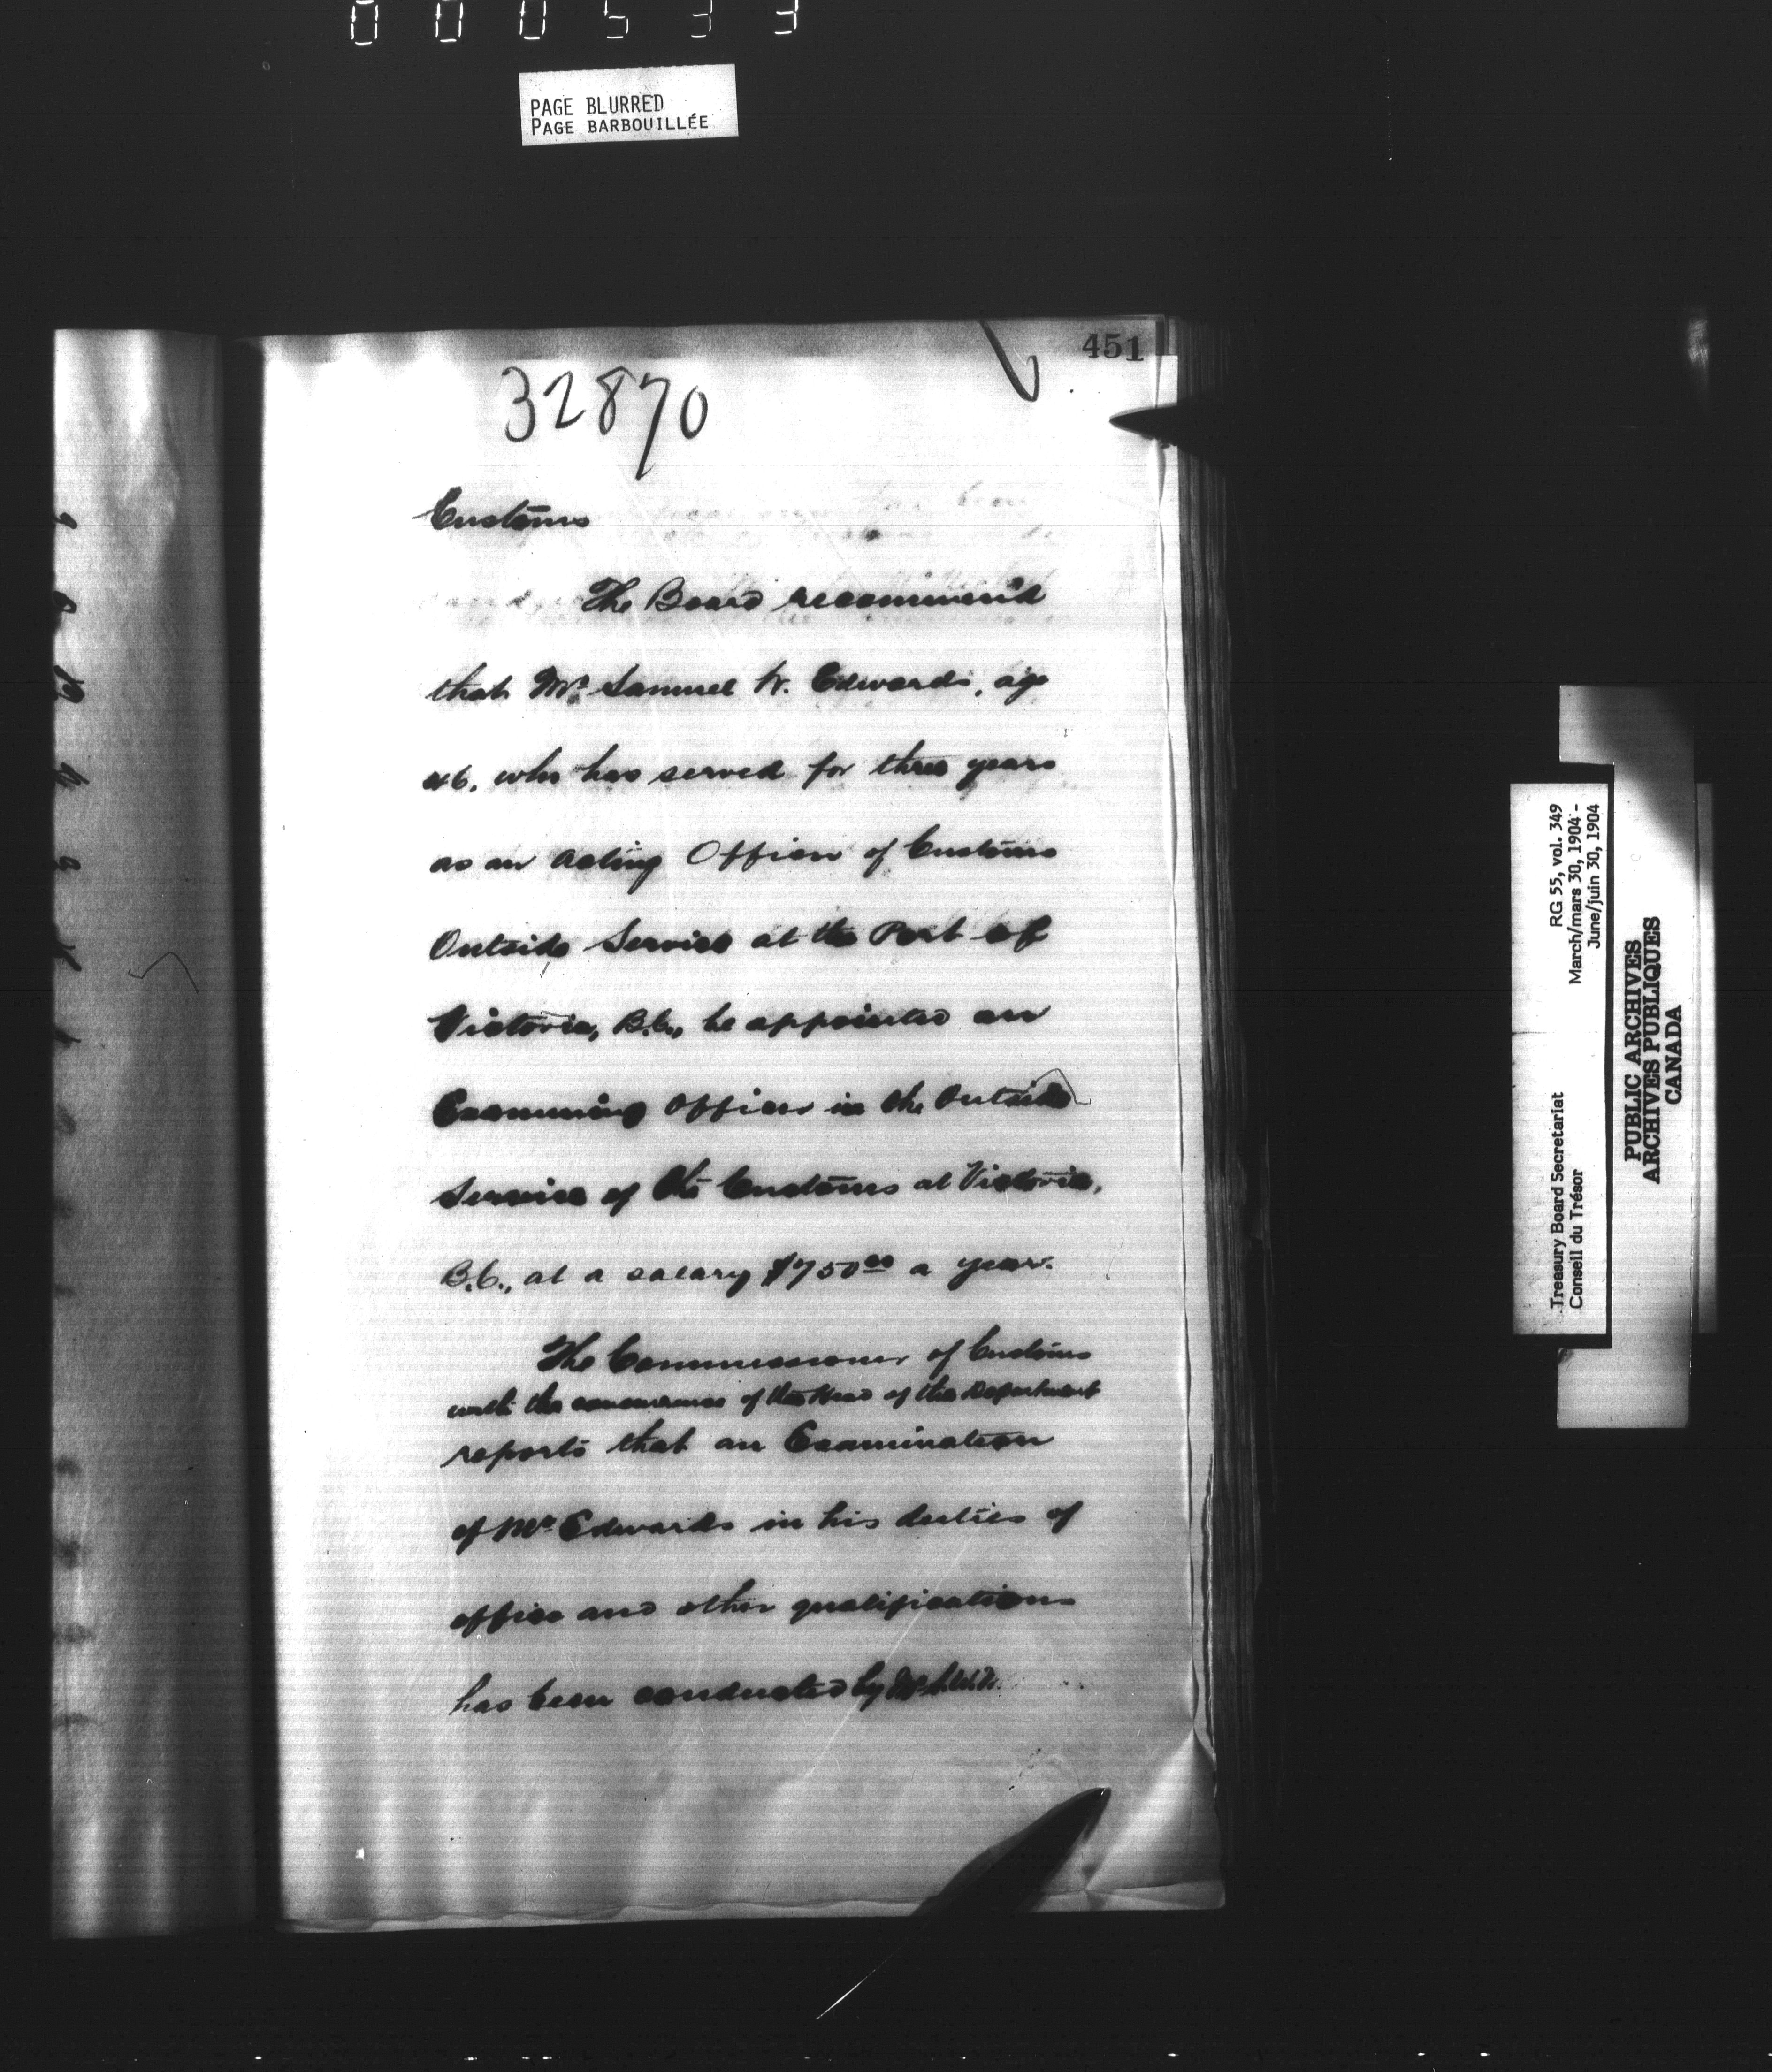 000533
PAGE BLURRED
PAGE BARBOUILLÉE
451
32870
Customs
The Board recommend
that Mr. Samuel W. Edwards, age
46, who has served for three years
as an Acting Officer of Customs
Outside Service at the Port of
Victoria, B.C., be appointed an
Examining Officer in the Outside
Service of the Customs at Victoria,
B.C., at a salary $750.00 a year.
The Commissioner of Customs
with the concurrence of the Head of the Department
reports that an Examination
of Mr Edwards in his duties of
office and other qualifications
has been conducted by Mr
Treasury Board Secretariat RG 55, vol. 349
Conseil du Trésor March/mars 30, 1904 -
June/juin 30, 1904
PUBLIC ARCHIVES
ARCHIVES PUBLIQUES
CANADA